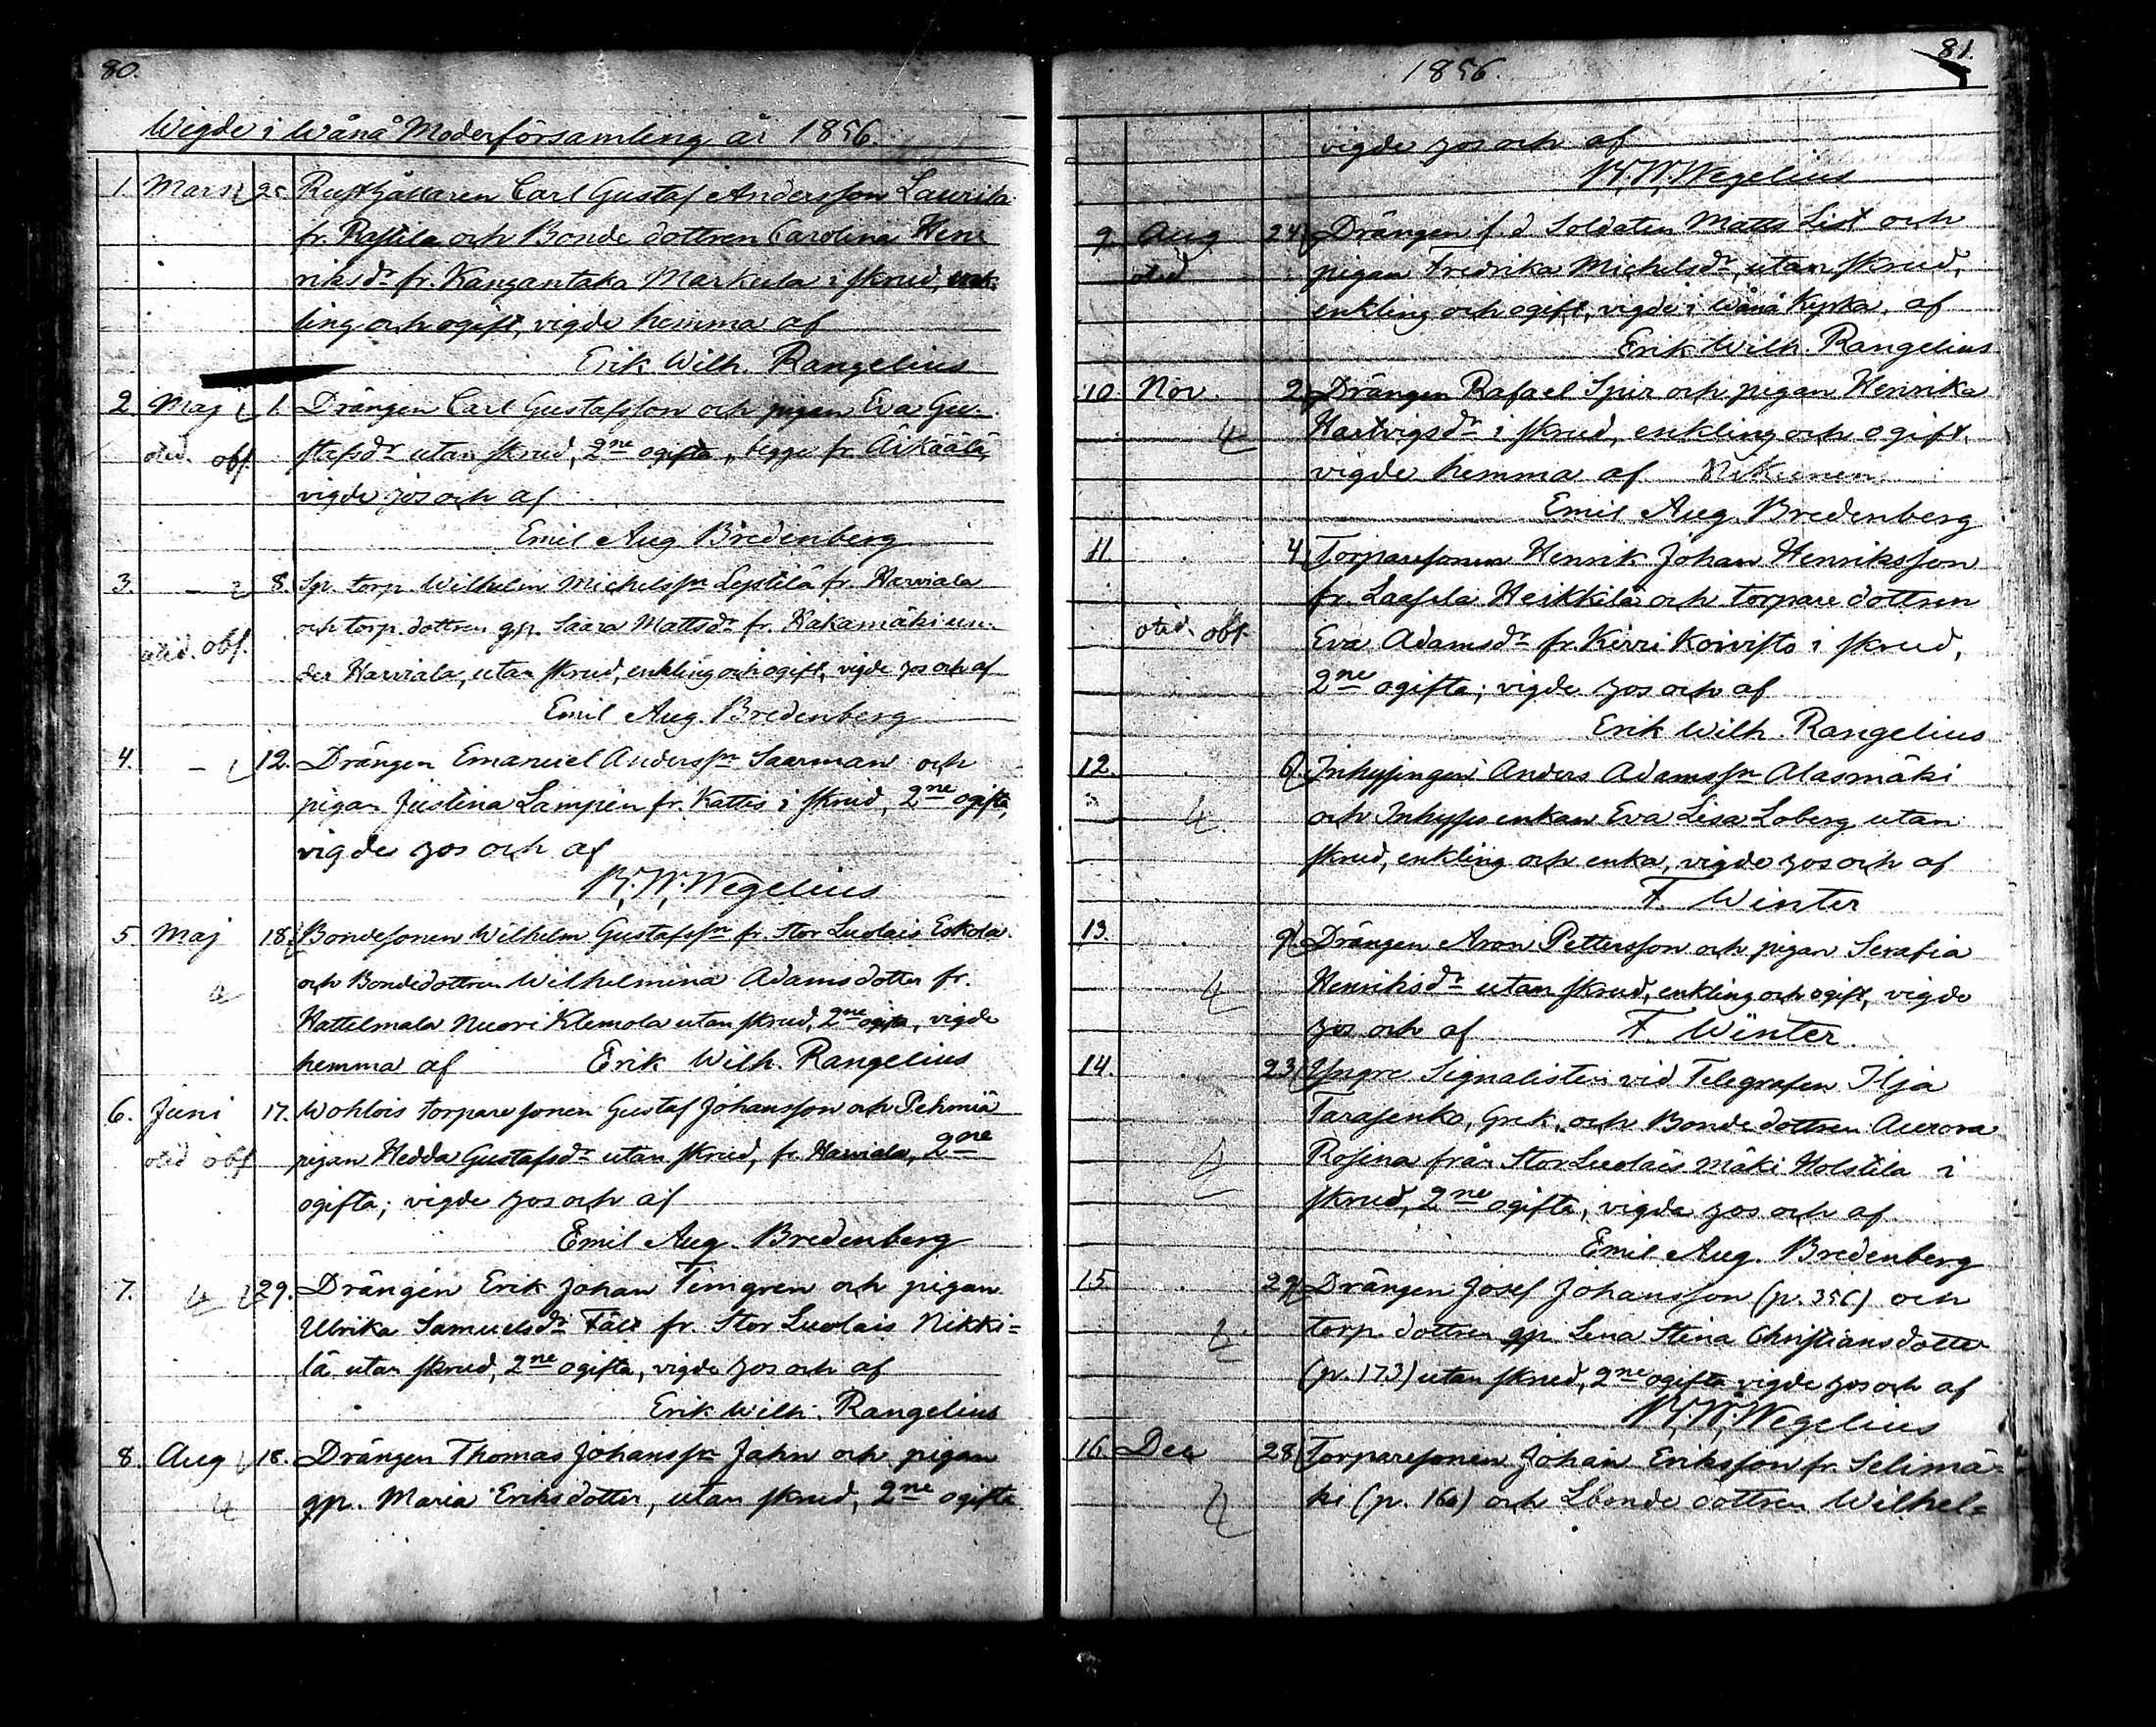 80.
Wigde i Wånå Moderförsamling år 1856.
1. Mars 25. Rusthållaren Carl Gustaf Andersson Laurila
fr. Rastila och Bonde dottren Carolina Hen-
riksdr fr. Kangantaka Markula i skrud, enk-
ling och ogift, vigde hemma af
Erik Wilh. Rangelius
2 Maj 1. Drängen Carl Gustafsson och pigan Eva Gu-
oted. obs. stafsdr utan skrud, 2ne ogifta, begge fr. Äikäälä,
vigde hos och af
Emil Aug. Bredenberg
3. — 8. Sp. torp. Wilhelm Michelsson Lepistilä fr. Harviala
och torp. dottren gp. Saara Mattsdr fr. Hakamäki un-
oted. obs. der Harviala, utan skrud, enkling och ogift, vigde hos och af
Emil Aug. Bredenberg
4. — 12. Drängen Emanuel Andersson Saarman och
pigan Justina Lampen fr. Kattis i skrud, 2ne ogifta,
vigde hos och af
K. W. Wegelius
5 Maj 18. Bondesonen Wilhelm Gustafsson fr. Stor Luolais Eskola
och Bondedottren Wilhelmina Adamsdotter fr.
Kattelmala Nuori Klemola utan skrud, 2ne ogifta, vigde
hemma af Erik Wilh. Rangelius
6. Juni 17. Wohlois torpare sonen Gustaf Johansson och Pehmiä
oted obs pigan Hedda Gustafsdr utan skrud, fr. Harviala, 2ne
ogifta; vigde hos och af
Emil Aug. Bredenberg
7. 4 29. Drängen Erik Johan Timgren och pigan
Ulrika Samuelsdr Fält fr. Stor Luolais Nikki-
lä utan skrud, 2ne ogifta, vigde hos och af
Erik Wilh. Rangelius
8. Aug 18. Drängen Thomas Johansson Jahn och pigan
4 gp. Maria Eriksdotter, utan skrud, 2ne ogifta
1856.
81.
vigde hos och af
K. W. Wegelius
9. Aug 24 Drängen f. d. Soldaten Matts List och
oted pigan Fredrika Michelsdr, utan skrud,
enkling och ogift, vigde i Wånå Kyrka, af
Erik Wilh. Rangelius
10. Nov. 2 Drängen Rafael Spir och pigan Henrika
4 Hartvigsdr i skrud, enkling och ogift,
vigde hemma af
Emil Aug. Bredenberg
11. 4 Torparesonen Henrik Johan Henriksson
fr. Laasela Heikkilä och torpare dottren
oted. obs. Eva Adamsdr fr. Kirri Koivisto i skrud,
2ne ogifta; vigde hos och af
Erik Wilh. Rangelius
12. Inhysingen Anders Adamsson Alasmäki
4. och Inhyses enkan Eva Lisa Loberg utan
skrud, enkling och enka, vigde hos och af
F. Winter
13. 9 Drängen Aron Pettersson och pigan Serafia
4 Henriksdr utan skrud, enkling och ogift, vigde
hos och af F. Winter.
14. 23 Yngre Signalisten vid Telegrafen Ilja
Tarasenko, Grek, och Bonde dottren Aurora
4 Rosina från Stor Luolais Mäki Holstila i
skrud, 2ne ogifta, vigde hos och af
Emil Aug. Bredenberg
15 29 Drängen Josef Johansson (p. 356) och
4. torp. dottren gp. Lena Stina Christiansdotter
(p. 173) utan skrud, 2ne ogifta vigde hos och af
K. W. Wegelius
16. Dec 28 Torparesonen Johan Eriksson fr. Selimä-
4 ki (p. 160) och Lbonde dottren Wilhel=